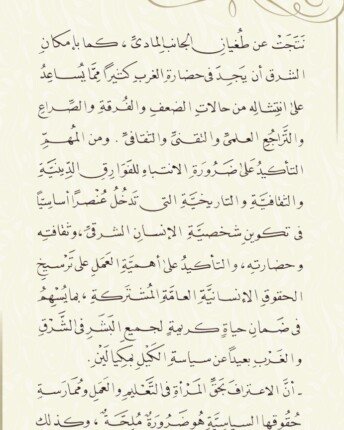 نَتَجَتْ عن طُغيانِ الجانبِ المادىِّ ، كما بإمكانِ
الشرقِ أن يَجِدَ فى حضارةِ الغربِ كثيرًا ممَّا يُساعِدُ
على انتِشالِه من حالاتِ الضعفِ والفُرقةِ والصِّراعِ
والتَّراجُعِ العلمىِّ والتقنىِّ والثقافىِّ . ومن المُهمِّ
التأكيدُ على ضَرُورَةِ الانتباهِ للفَوَارقِ الدِّينيَّةِ
والثقافيَّةِ والتاريخيَّةِ التى تَدخُلُ عُنْصرًا أساسيًّا
فى تكوينِ شخصيَّةِ الإنسانِ الشرقىِّ، وثقافتِه
وحضارتِه، والتأكيدُ على أهميَّةِ العملِ على تَرسِيخِ
الحقوقِ الإنسانيَّةِ العامَّةِ المُشْتَركةِ ، بما يُسْهِمُ
فى ضمانِ حياةٍ كريمةٍ لجميعِ البَشَرِ فى الشَّرْقِ
والغَرْبِ بعيدًا عن سياسةِ الكَيْلِ بمِكْيالَيْن.
- أنَّ الاعترافَ بحَقِّ المَرأةِ فى التَّعليمِ والعملِ ومُمارسةِ
حُقُوقِها السياسيَّةِ هُو ضَرُورَةٌ مُلِحَّةٌ ، وكذلك